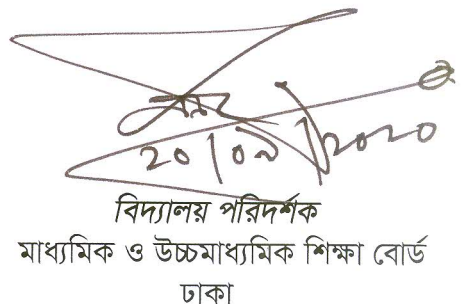 ২০/০৯/২০২০
বিদ্যালয় পরিদর্শক
মাধ্যমিক ও উচ্চমাধ্যমিক শিক্ষা বোর্ড
ঢাকা